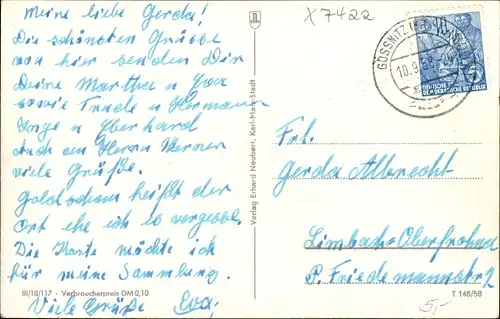 Meine liebe Gerda!
Die schönsten Grüße
von hier senden Dir
Deine Martha u Eva
sowie Trude u Hermann
Inge u Eberhard
Auch an Herrn Werner
viele Grüße.
heißt der
Ort ehe ich es vergesse.
Die Karte möchte ich
für meine Sammlung.
Viele Grüße Eva.
III/18/117 · Verbraucherpreis DM 0,10
Verlag Erhard Neubert, Karl-Marx-Stadt
X 7422
GÖSSNITZ
10.9.58
DEUTSCHE
DEMOKRATISCHE REPUBLIK
Frl.
Gerda Albrecht
Limbach-Oberfrohna
P. Friedemannstr 2
5,-
T 146/58